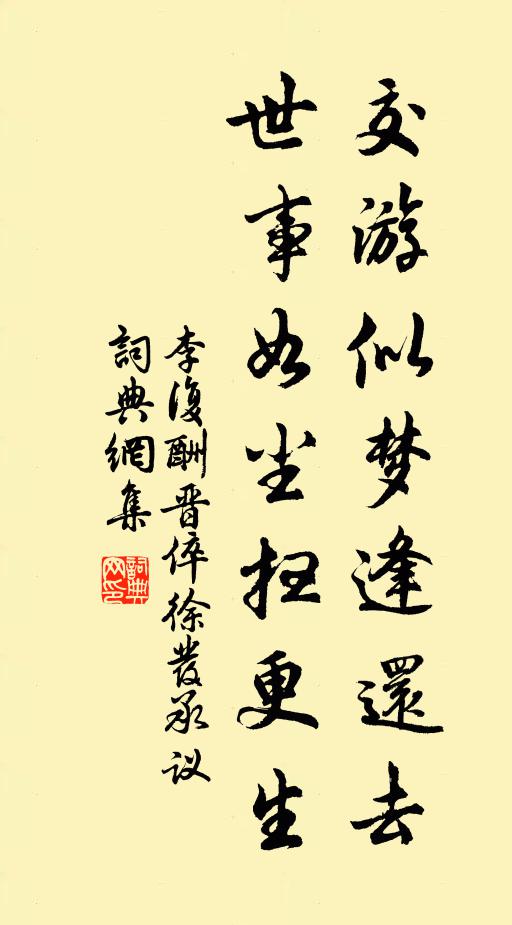 交游似梦逢還去
世事如尘扫更生
李復酬晋倅徐發承议
詞典網集
詞典
网印